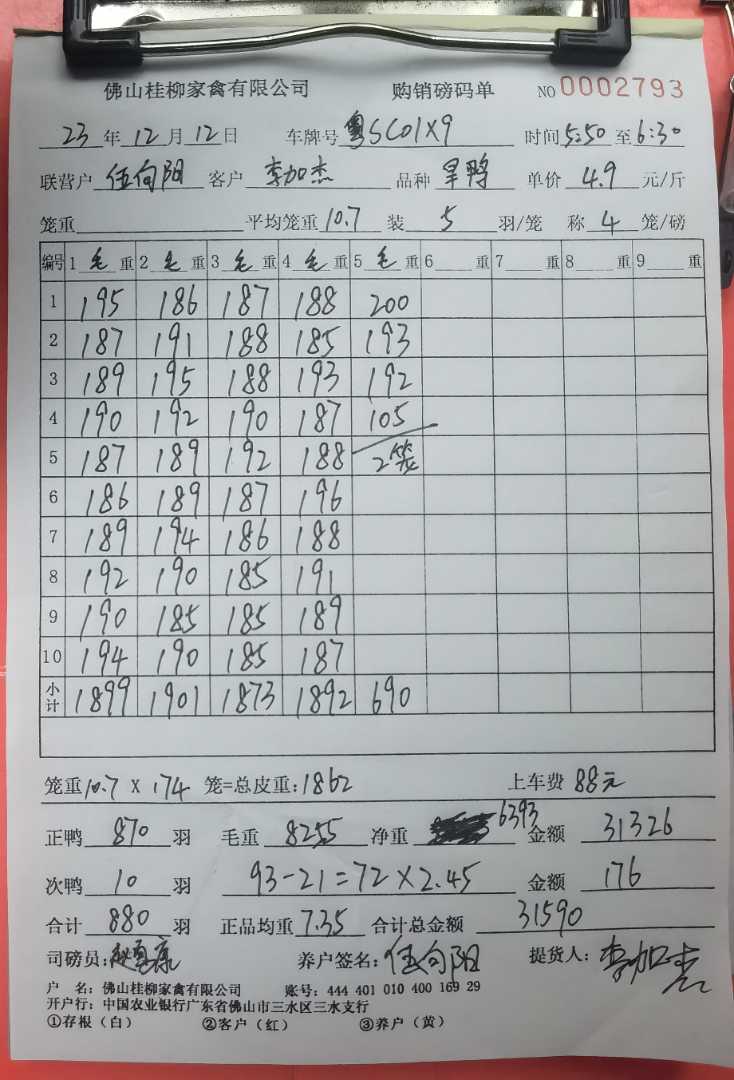 佛山桂柳家禽有限公司 购销磅码单 NO 0002793
23 年 12 月 12 日 车牌号 粤SC01X9 时间 5:50 至 6:30
联营户 伍向阳 客户 李加杰 品种 旱鸭 单价 4.9 元/斤
笼重 平均笼重 10.7 装 5 羽/笼 称 4 笼/磅
编号 1 毛 重 2 毛 重 3 毛 重 4 毛 重 5 毛 重 6 重 7 重 8 重 9 重
1 195 186 187 188 200
2 187 191 188 185 193
3 189 195 188 193 192
4 190 192 190 187 105
5 187 189 192 188 2笼
6 186 189 187 196
7 189 194 186 188
8 192 190 185 191
9 190 185 185 189
10 194 190 185 187
小计 1899 1901 1873 1892 690
笼重 10.7 X 174 笼=总皮重: 1862 上车费 88元
正鸭 870 羽 毛重 8255 净重 6393 金额 31326
次鸭 10 羽 93-21=72×2.45 金额 176
合计 880 羽 正品均重 7.35 合计总金额 31590
司磅员: 养户签名: 伍向阳 提货人: 李加杰
户 名: 佛山桂柳家禽有限公司 账号: 444 401 010 400 169 29
开户行: 中国农业银行广东省佛山市三水区三水支行
①存根（白） ②客户（红） ③养户（黄）